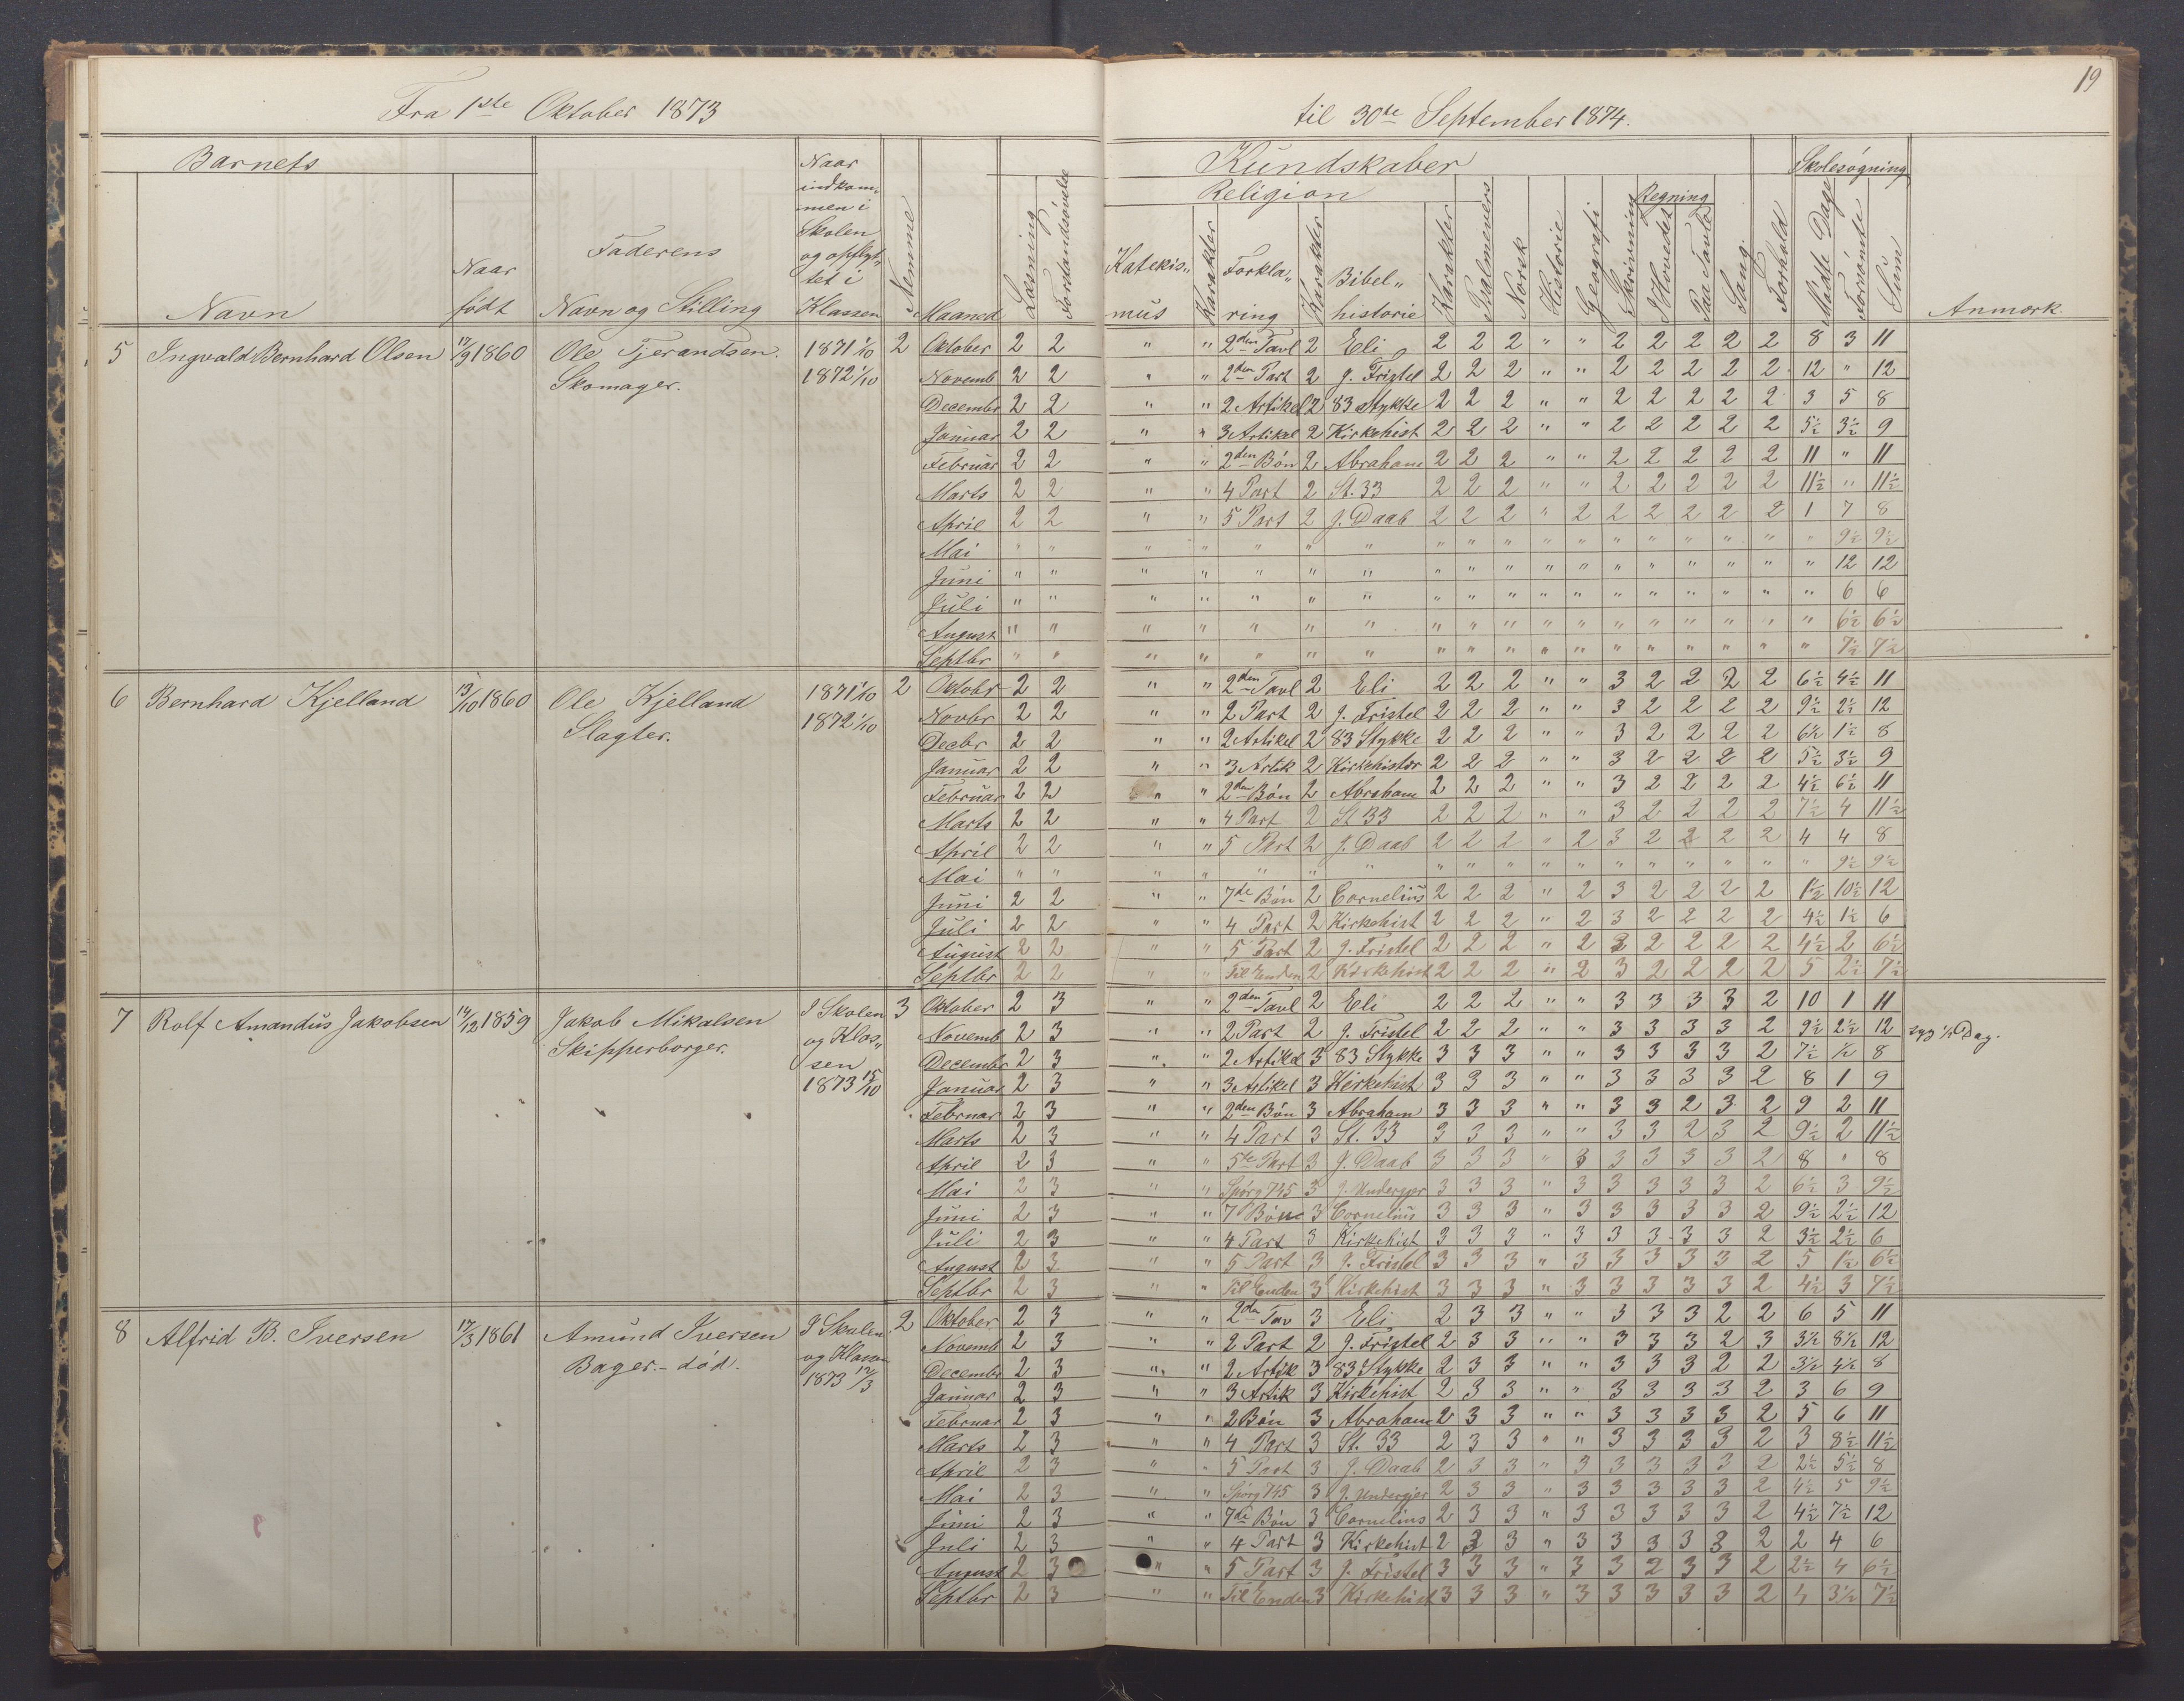 19
Fra 1ste Oktober 1873 til 30te September 1874.
Barnets Kundskaber Skolesøgning
Religion Regning
Navn Naar født Faderens Navn og Stilling Naar indkommen i Skolen og opflyttet i Klassen Nemme Maaned Læsning Forstandsøvelse Katekis„mus Karakter Forkla„ring Karakter Bibel„historie Karakter Psalmevers Norsk Historie Geografi Skrivning I Hovedet Paa Tavle Sang Forhold Mødte Dage Forsømte Sum Anmærk.
5 Ingvald Bernhard Olsen 17/9 1860 Ole Tjerandsen. 1871 1/10 2 Oktober 2 2 " " 2den Tavl 2 Eli 2 2 2 " " 2 2 2 2 2 8 3 11
Skomager. 1872 1/10 Novemb 2 2 " " 2den Part 2 J. Fristel 2 2 2 " " 2 2 2 2 2 12 " 12
Decembr 2 2 " " 2 Artikel 2 83 Stykke 2 2 2 " " 2 2 2 2 2 3 5 8
Januar 2 2 " " 3 Artikel 2 Kirkehist 2 2 2 " " 2 2 2 2 2 5½ 3½ 9
Februar 2 2 " " 2den Bøn 2 Abraham 2 2 2 " " 2 2 2 2 2 11 " 11
Marts 2 2 " " 4 Part 2 St. 33 2 2 2 " " 2 2 2 2 2 11½ " 11½
April 2 2 " " 5 Part 2 J. Daab 2 2 2 " 2 2 2 2 2 2 1 7 8
Mai " " " " " " " " " " " " " " " " " " 9½ 9½
Juni " " " " " " " " " " " " " " " " " " 12 12
Juli " " " " " " " " " " " " " " " " " " 6 6
August " " " " " " " " " " " " " " " " " " 6½ 6½
Septbr " " " " " " " " " " " " " " " " " " 7½ 7½
6 Bernhard Kjelland 13/10 1860 Ole Kjelland 1871 1/10 2 Oktobr 2 2 " " 2den Tavl 2 Eli 2 2 2 " " 3 2 2 2 2 6½ 4½ 11
Slagter. 1872 1/10 Novbr 2 2 " " 2 Part 2 J. Fristel 2 2 2 " " 3 2 2 2 2 9½ 2½ 12
Decbr 2 2 " " 2 Artikel 2 83 Stykke 2 2 2 " " 3 2 2 2 2 6½ 1½ 8
Januar 2 2 " " 3 Artik 2 Kirkehistor 2 2 2 " " 3 2 2 2 2 5½ 3½ 9
Februar 2 2 " " 2den Bøn 2 Abraham 2 2 2 " " 3 2 2 2 2 4½ 6½ 11
Marts 2 2 " " 4 Part 2 St 33 2 2 2 " " 3 2 2 2 2 7½ 4 11½
April 2 2 " " 5 Part 2 J. Daab 2 2 2 " 2 3 2 2 2 2 4 4 8
Mai " " " " " " " " " " " " " " " " " " 9½ 9½
Juni 2 2 " " 7de Bøn 2 Cornelius 2 2 2 " 2 3 2 2 2 2 1½ 10½ 12
Juli 2 2 " " 4 Part 2 Kirkehist 2 2 2 " 2 3 2 2 2 2 4½ 1½ 6
August 2 2 " " 5 Part 2 J. Fristel 2 2 2 " 2 3 2 2 2 2 4½ 2 6½
Septbr 2 2 " " Til Enden 2 Kirkehist 2 2 2 " 2 3 2 2 2 2 5 2½ 7½
7 Rolf Amandus Jakobsen 14/12 1859 Jakob Mikalsen I Skolen 3 Oktober 2 3 " " 2den Tavl 2 Eli 2 2 2 " " 3 3 3 3 2 10 1 11
Skipperborger. og Klas„ Novemb 2 3 " " 2 Part 2 J. Fristel 2 2 2 " " 3 3 3 3 2 9½ 2½ 12 syg ½ Dag.
sen Decembr 2 3 " " 2 Artikel 3 83 Stykke 3 3 3 " " 3 3 3 3 2 7½ ½ 8
1873 15/10 Januar 2 3 " " 3 Artikel 3 Kirkehist 3 3 3 " " 3 3 3 3 2 8 1 9
Februar 2 3 " " 2den Bøn 3 Abraham 3 3 3 " " 3 3 2 3 2 9 2 11
Marts 2 3 " " 4 Part 3 St. 33 3 3 3 " " 3 3 2 3 2 9½ 2 11½
April 2 3 " " 5te Part 3 J. Daab 3 3 3 " 3 3 3 3 3 2 8 " 8
Mai 2 3 " " Spørg 745 3 J. Undergjør 3 3 3 " 3 3 3 3 3 2 6½ 3 9½
Juni 2 3 " " 7 Bøn 3 Cornelius 3 3 3 " 3 3 3 3 3 2 9½ 2½ 12
Juli 2 3 " " 4 Part 3 Kirkehist 3 3 3 " 3 3 3 3 3 2 3½ 2½ 6
August 2 3 " " 5 Part 3 J. Fristel 3 3 3 " 3 3 3 3 3 2 5 1½ 6½
Septbr 2 3 " " Til Enden 3 Kirkehist 3 3 3 " 3 3 3 3 3 2 4½ 3 7½
8 Alfrid B. Iversen 17/3 1861 Amund Iversen I Skolen 2 Oktober 2 3 " " 2den Tav 3 Eli 2 3 3 " " 3 3 3 2 2 6 5 11
Bager. - død. og Klassen Novemb 2 3 " " 2 Part 2 J. Fristel 2 3 3 " " 3 3 3 2 3 3½ 8½ 12
1873 12/3 Decembr 2 3 " " 2 Artik 3 83 Stykke 2 3 3 " " 3 3 3 2 2 3½ 4½ 8
Januar 2 3 " " 3 Artik 3 Kirkehist 2 3 3 " " 3 3 3 3 2 3 6 9
Februar 2 3 " " 2 Bøn 3 Abraham 2 3 3 " " 3 3 3 3 2 5 6 11
Marts 2 3 " " 4 Part 3 St. 33 2 3 3 " " 3 3 3 3 2 3 8½ 11½
April 2 3 " " 5 Part 3 J. Daab 2 3 3 " 3 3 3 3 3 2 2½ 5½ 8
Mai 2 3 " " Spørg 745 3 J. Undergjør 2 3 3 " 3 3 3 3 3 2 4½ 5 9½
Juni 2 3 " " 7de Bøn 3 Cornelius 2 3 3 " 3 3 3 3 3 2 4½ 7½ 12
Juli 2 3 " " 4 Part 3 Kirkehist 2 3 3 " 3 3 3 3 3 2 2 4 6
August 2 3 " " 5 Part 3 J. Fristel 3 3 3 " 3 3 2 3 3 2 2½ 4 6½
Septbr 2 3 " " Til Enden 3 Kirkehist 3 3 3 " 3 3 3 3 3 2 4 3½ 7½